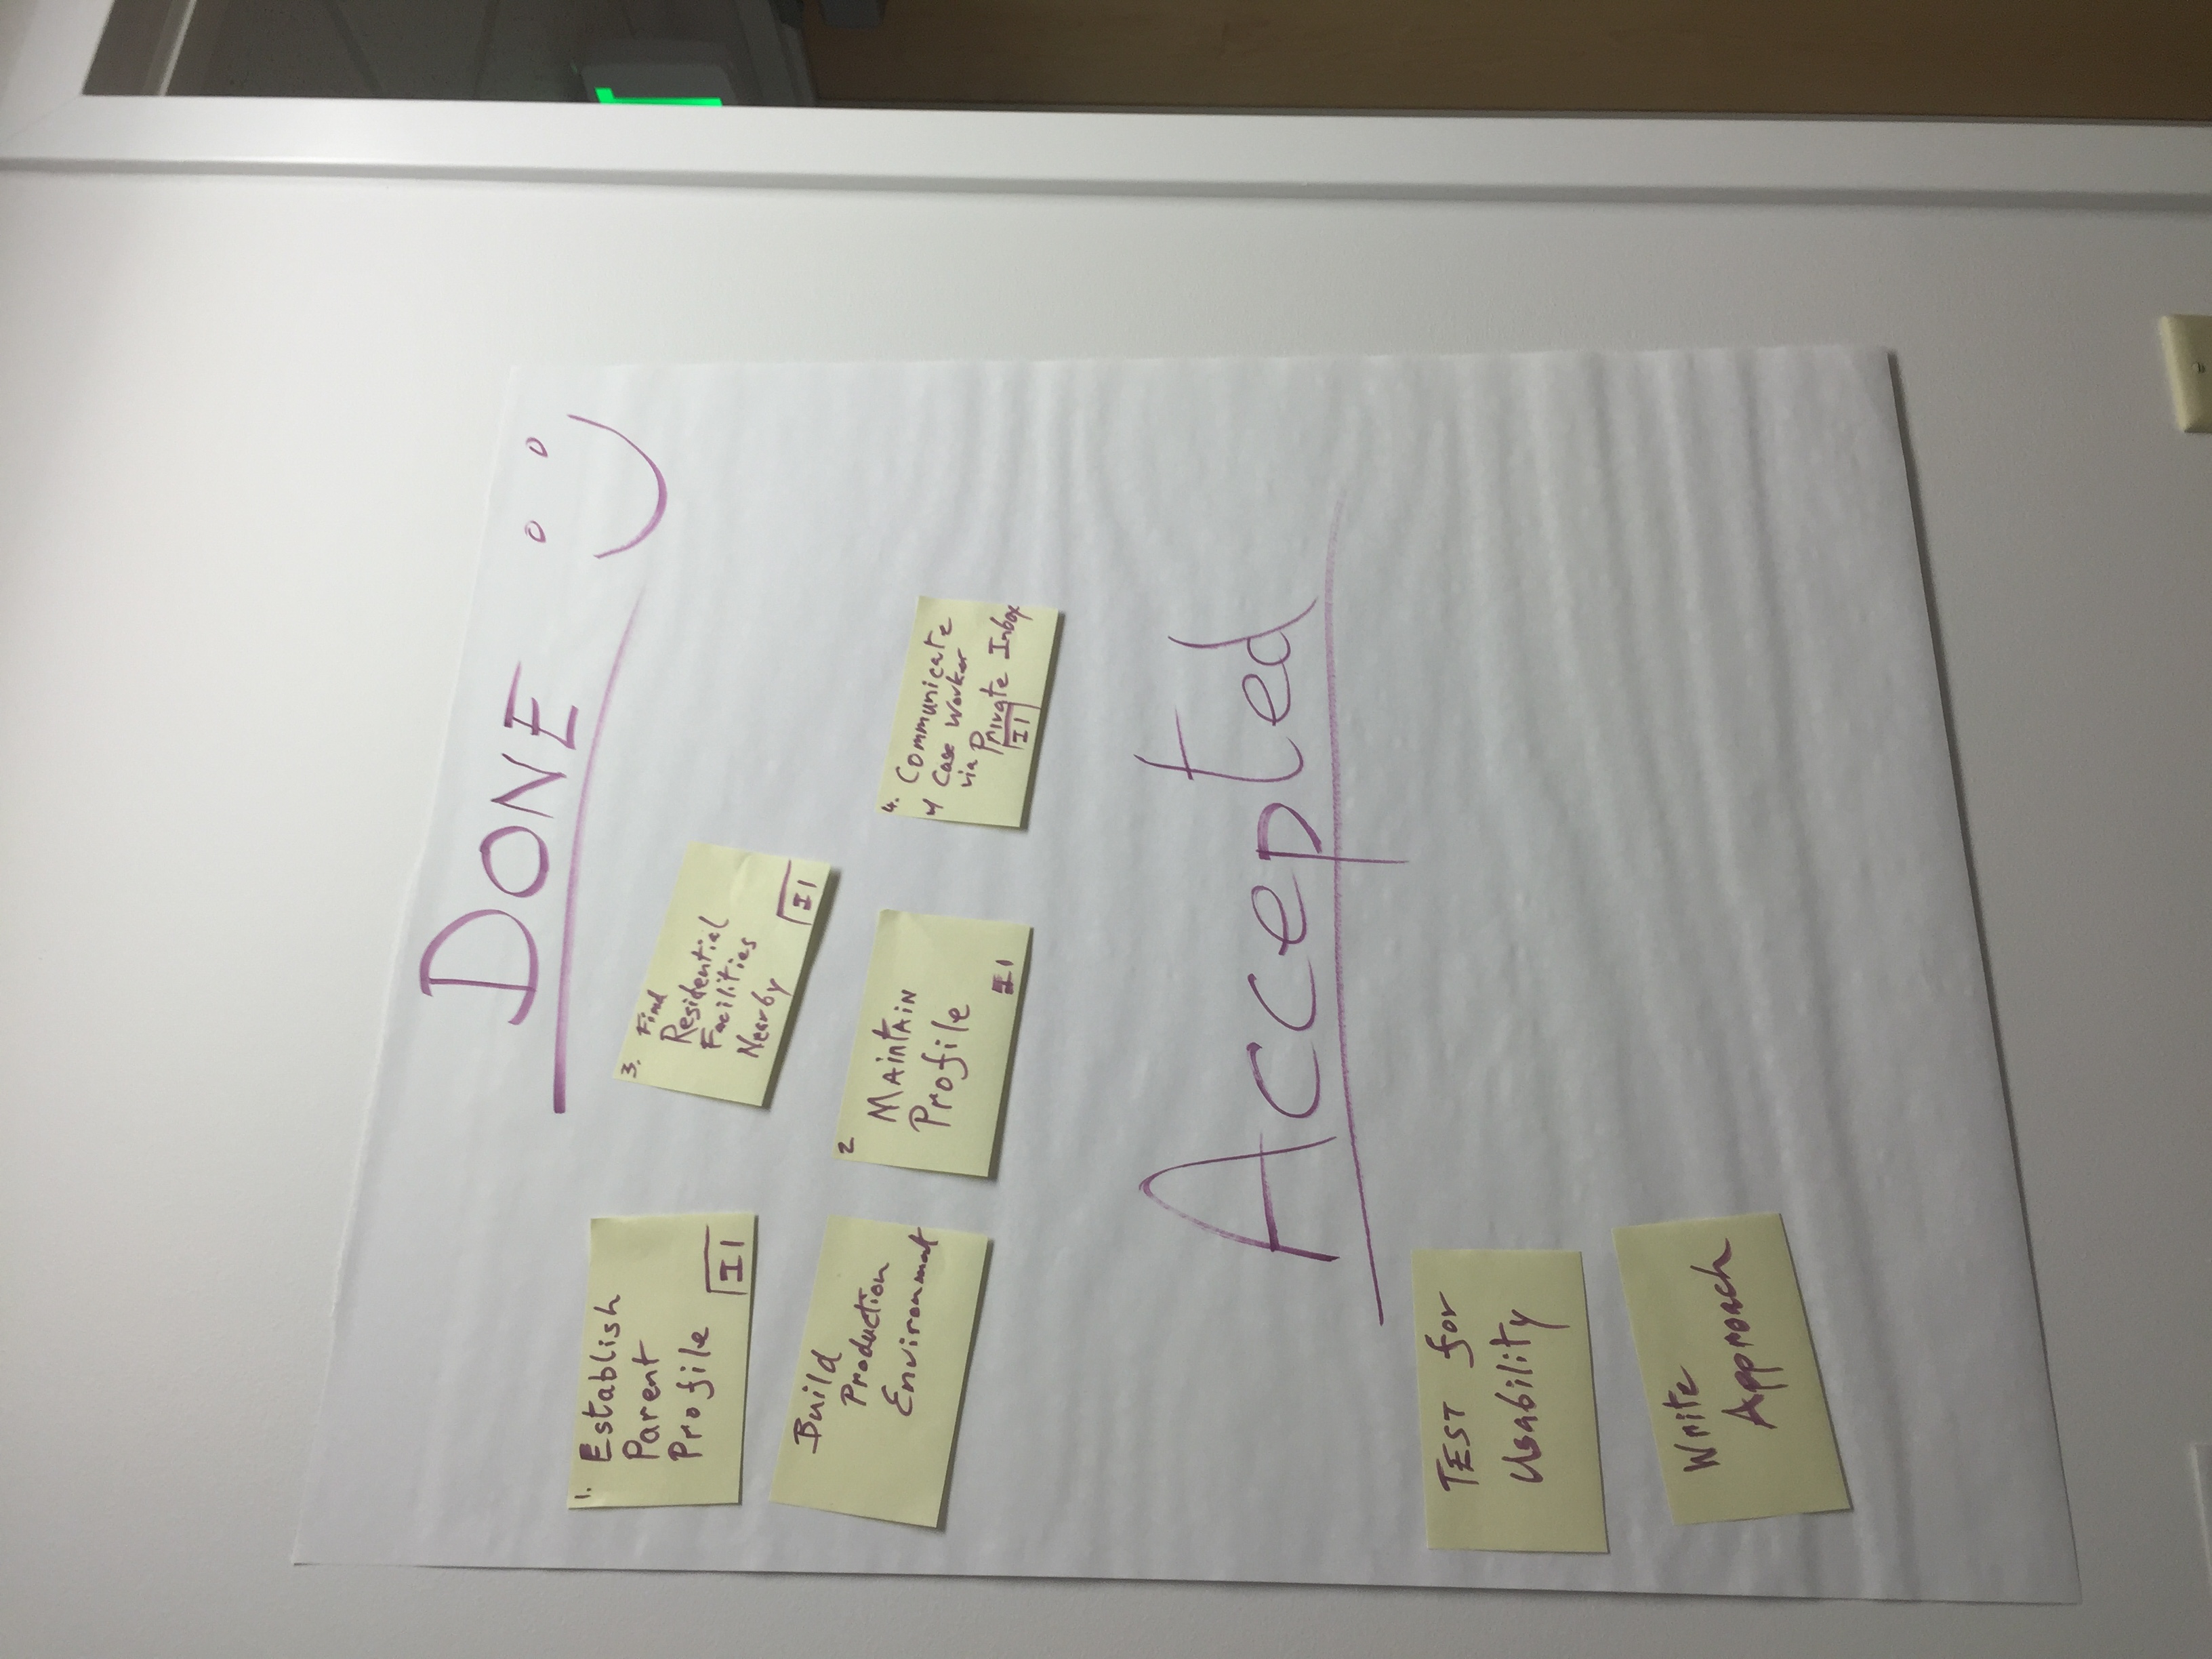 DONE
1.
Establish
Parent
Profile
I1
3. Find
Residential
Facilities
Nearby
I1
Build
Production
Environment
2
MAintAiN
Profile
I1
4. Communicate
w/ Case Worker
via
Private Inbox
I1
Accepted
TEST for
Usability
Write
Approach